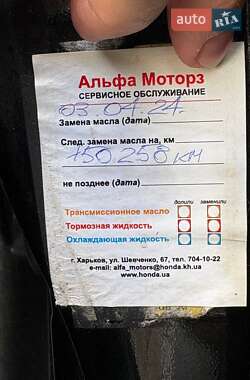 AUTO RIA .com
Альфа Моторз
СЕРВИСНОЕ ОБСЛУЖИВАНИЕ
03 04 21.
Замена масла (дата)
След. замена масла на, км
150 250 км
не позднее (дата)
долили заменили
Трансмиссионное масло
Тормозная жидкость
Охлаждающая жидкость
г. Харьков, ул. Шевченко, 67, тел. 704-10-22
e-mail: alfa_motors@honda.kh.ua
www.honda.ua